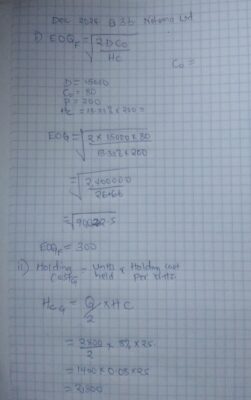 Dec 2025 Q 3b Ltd
i) EOQF = √2DCo / Hc
Co =
D = 15000
Co = 80
P = 200
Hc = 13.33% x 200 =
EOQ = √2 x 15000 x 80 / 13.33% x 200
= √2,400000 / 26.66
= √90022.5
EOQF = 300
ii) Holding CostG = Units held x Holding cost Per Unit
HcG = Q/2 x HC
= 2800/2 x 8% x 25
= 1400 x 0.08 x 25
= 2,800